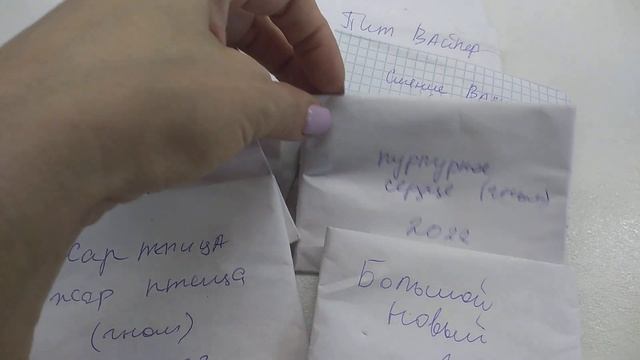 Пит Вайпер
Сияние
пурпурное
сердце (гном)
2022
жар птица
жар птица
(гном)
Большой
новый